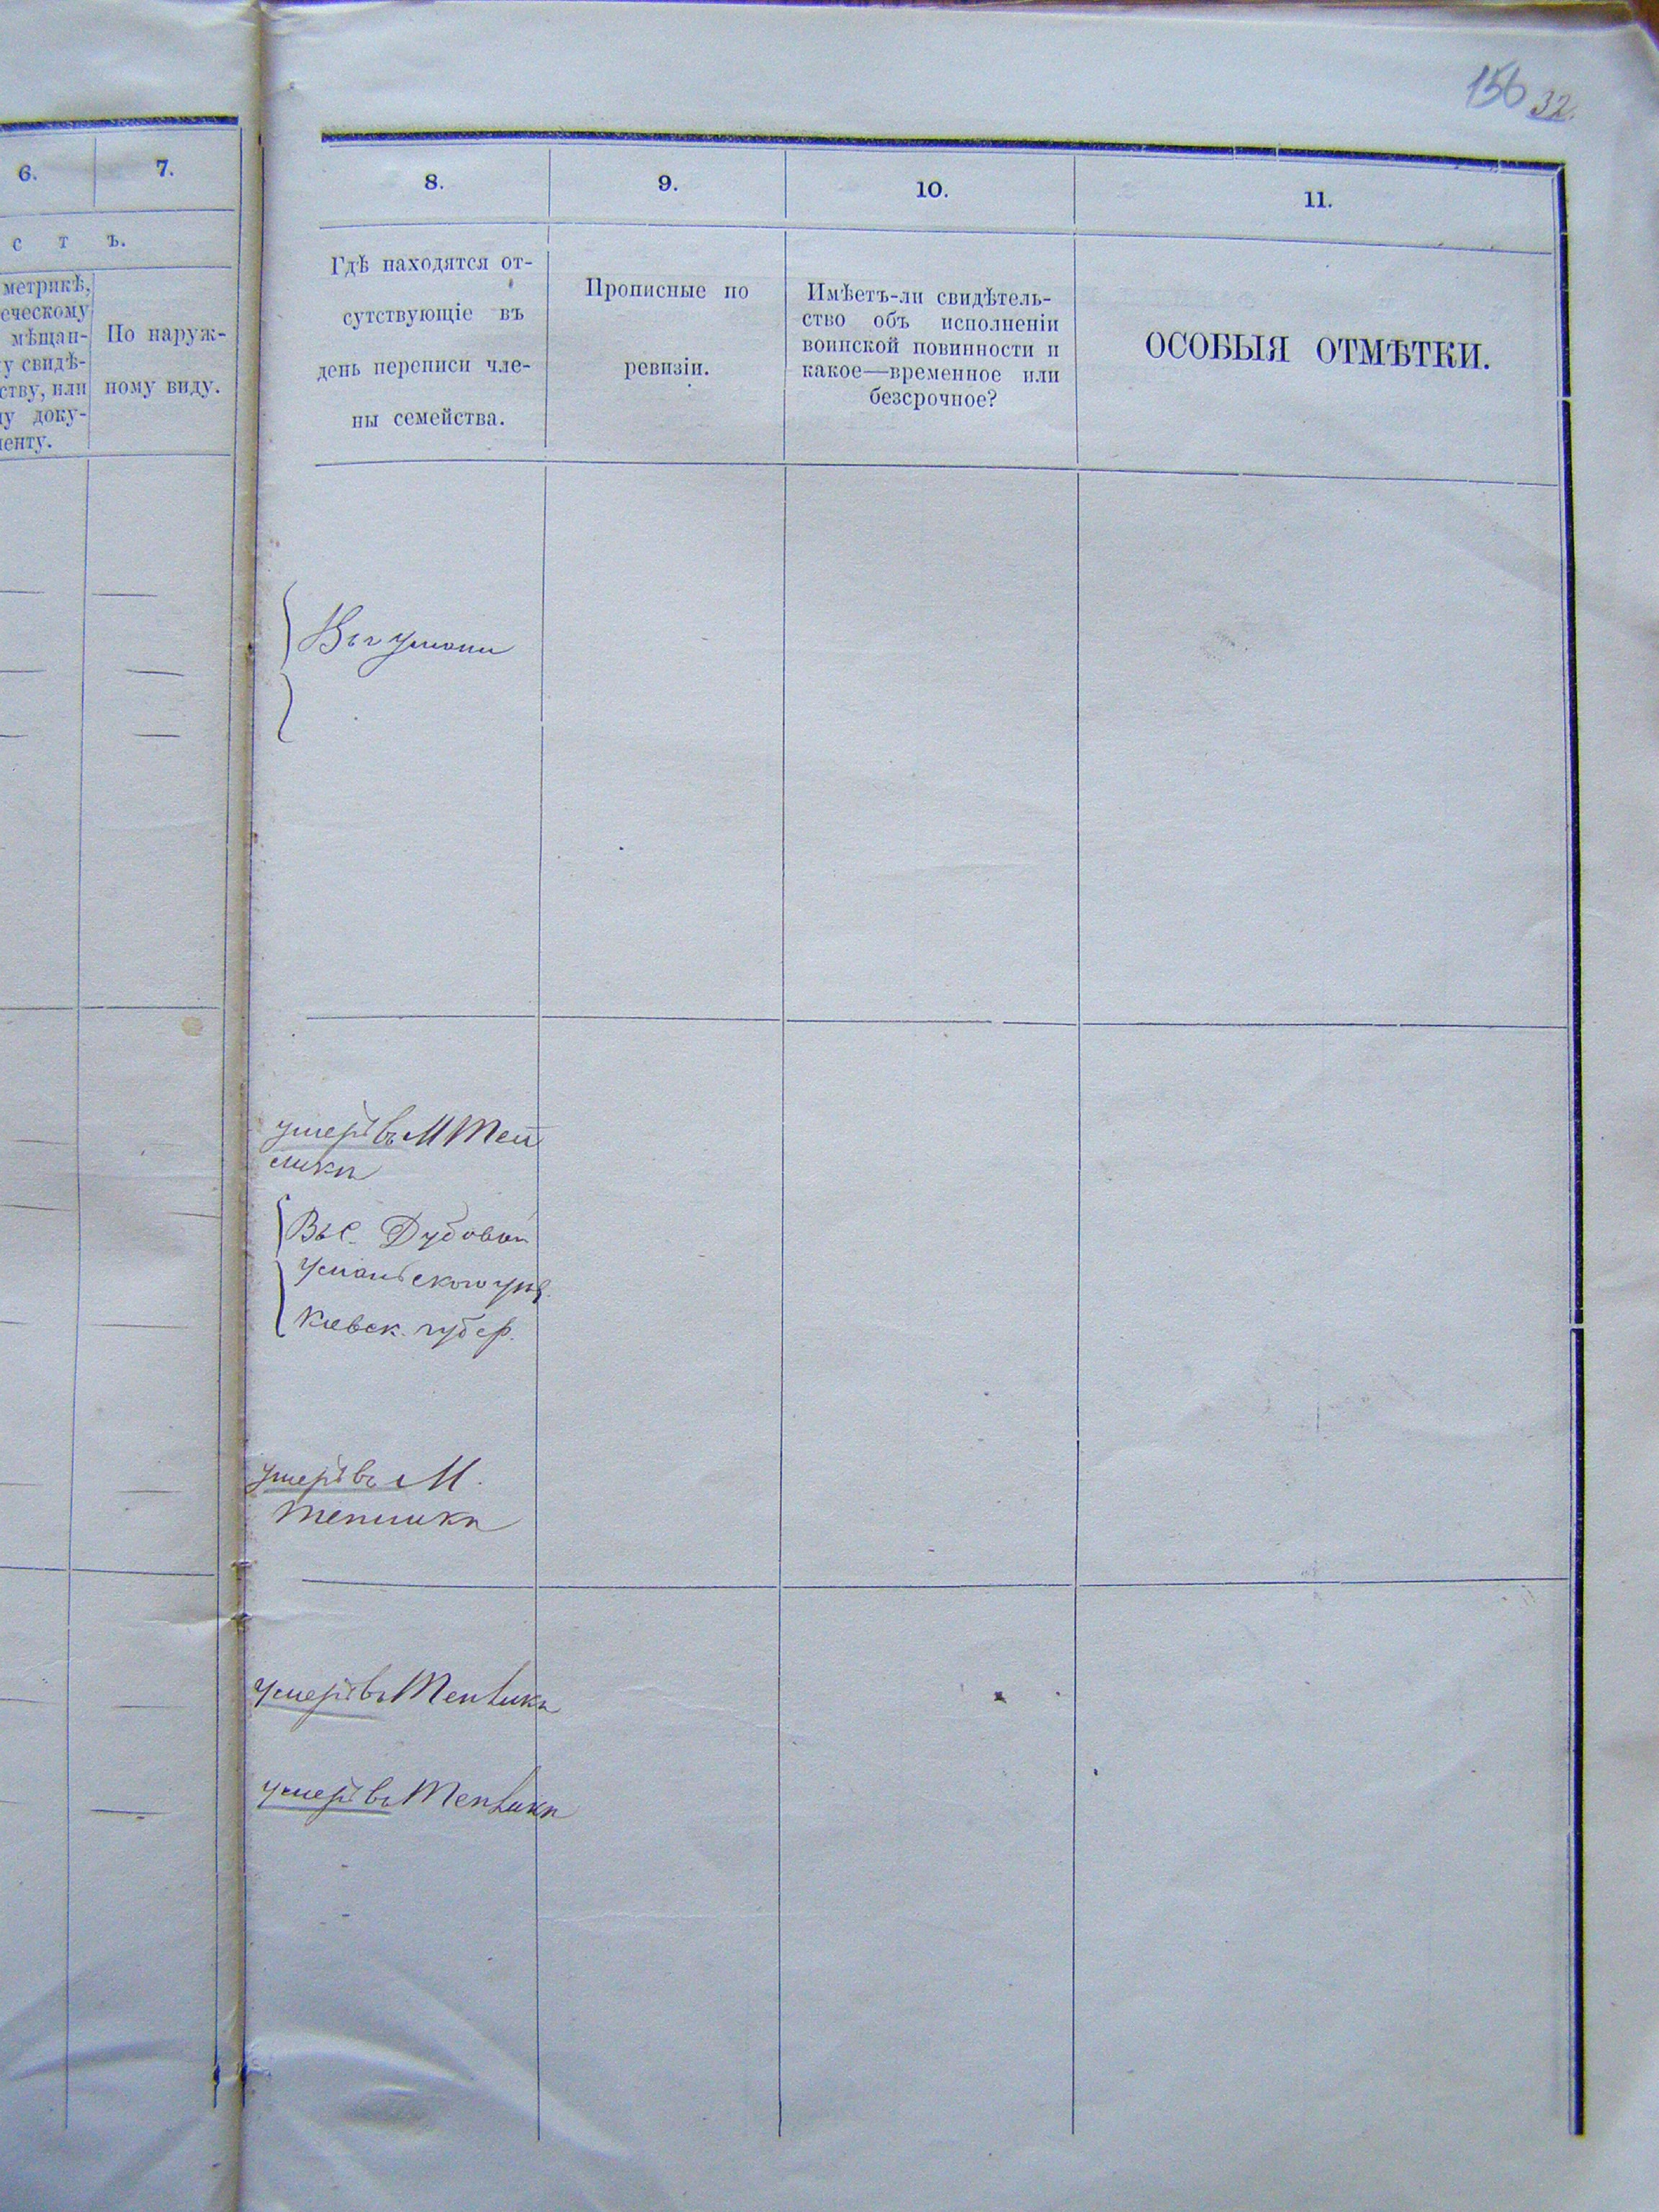 156 32.
6. 7. 8. 9. 10. 11.
с т ъ.
метрикѣ,
еческому
мѣщан-
у свидѣ-
ству, или
у доку-
енту.
По наруж-
ному виду.
Гдѣ находятся от-
сутствующіе въ
день переписи чле-
ны семейства.
Прописные по
ревизіи.
Имѣетъ-ли свидѣтель-
ство объ исполненіи
воинской повинности и
какое—временное или
безсрочное?
ОСОБЫЯ ОТМѢТКИ.
Въ г Умани
умеръ въ М Теп
лики
Въ с. Дубовой
Уманьского уѣз.
Киевск. губер.
умеръ въ М.
Теплики
умеръ въ Теплики
умеръ въ Теплики